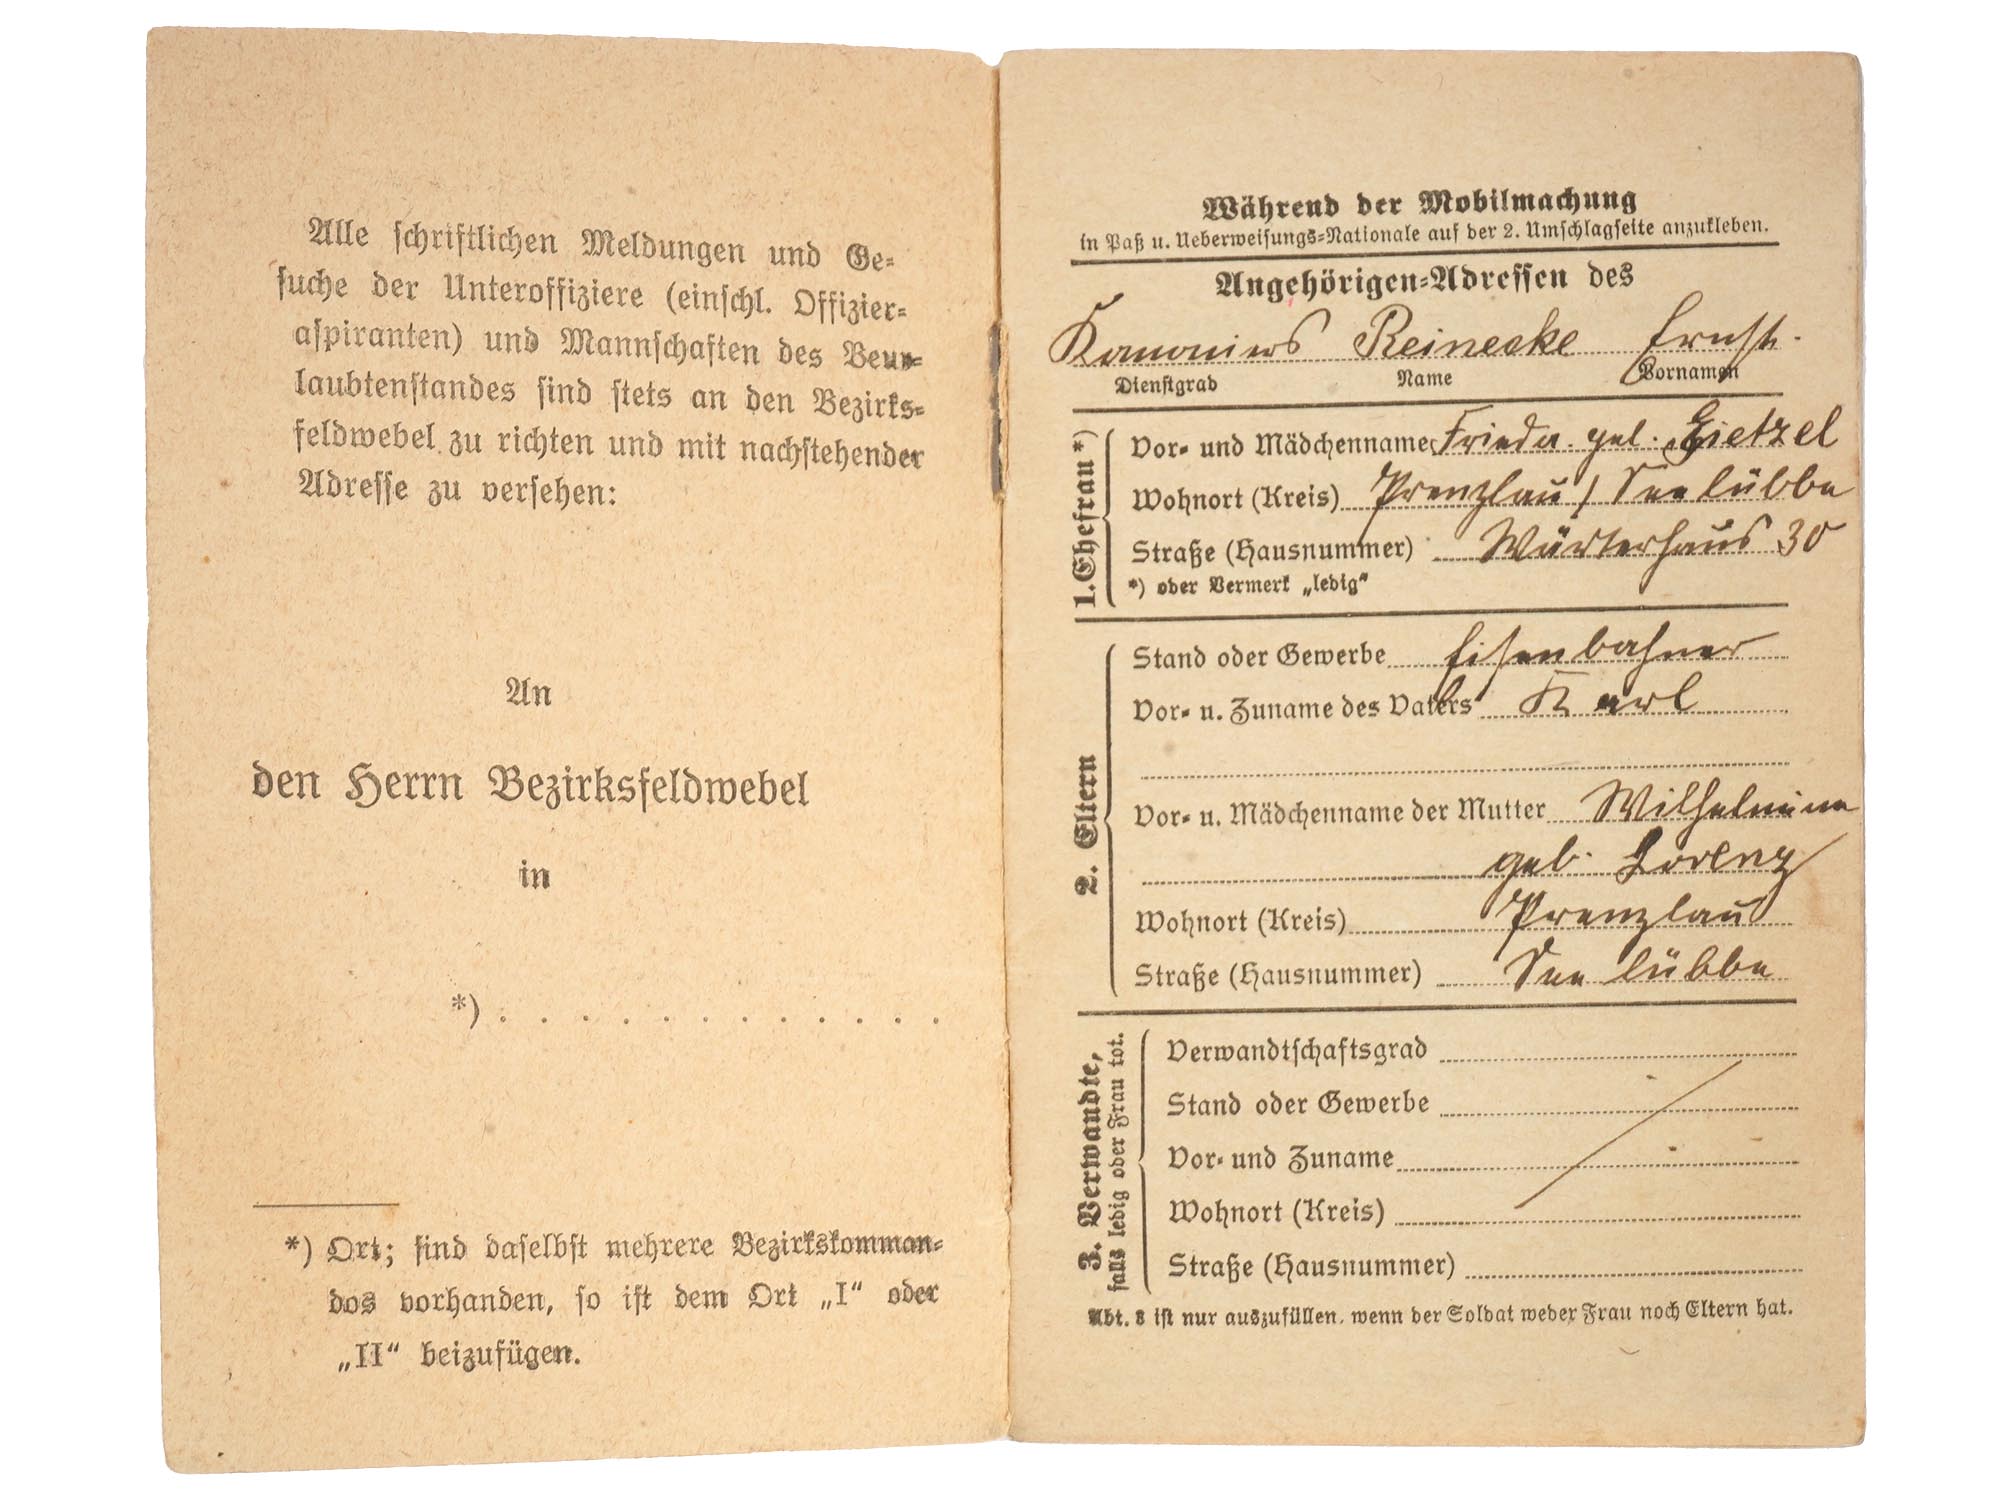 Alle schriftlichen Meldungen und Ge-
suche der Unteroffiziere (einschl. Offizier-
aspiranten) und Mannschaften des Beur-
laubtenstandes sind stets an den Bezirks-
feldwebel zu richten und mit nachstehender
Adresse zu versehen:
An
den Herrn Bezirksfeldwebel
in
*) . . . . . . . . . . . .
*) Ort; sind daselbst mehrere Bezirkskomman-
dos vorhanden, so ist dem Ort „I“ oder
„II“ beizufügen.
Während der Mobilmachung
in Paß u. Ueberweisungs-Nationale auf der 2. Umschlagseite anzukleben.
Angehörigen-Adressen des
Kanoniers Reinecke Ernst.
Dienstgrad Name Vornamen
1. Ehefrau *)
Vor- und Mädchenname Frieda geb. Gietzel
Wohnort (Kreis) Prenzlau / Seelübbe
Straße (Hausnummer) Wärterhaus 30
*) oder Vermerk „ledig“
2. Eltern
Stand oder Gewerbe Eisenbahner
Vor- u. Zuname des Vaters Karl
Vor- u. Mädchenname der Mutter Wilhelmine
geb. Lorenz
Wohnort (Kreis) Prenzlau
Straße (Hausnummer) Seelübbe
3. Verwandte,
falls ledig oder Frau tot.
Verwandtschaftsgrad
Stand oder Gewerbe
Vor- und Zuname
Wohnort (Kreis)
Straße (Hausnummer)
Abt. 3 ist nur auszufüllen, wenn der Soldat weder Frau noch Eltern hat.